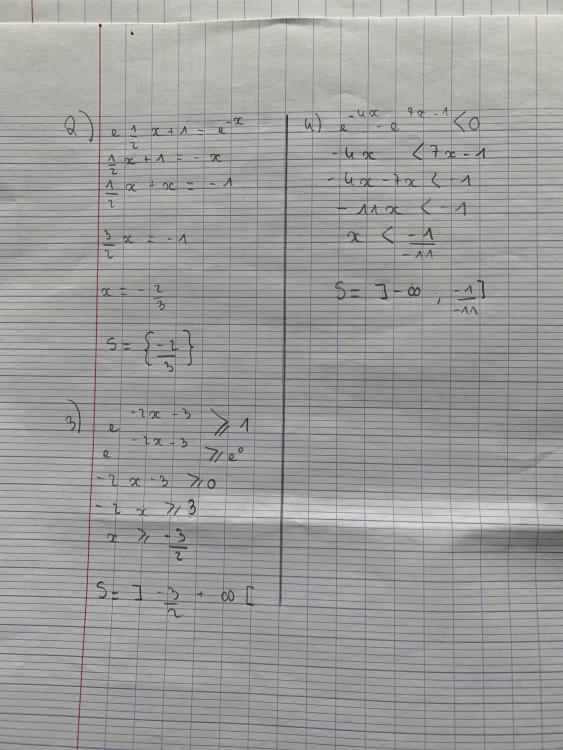 2) e 1/2 x + 1 = e^-x
1/2 x + 1 = - x
1/2 x + x = - 1
3/2 x = - 1
x = - 2/3
S = { -2/3 }
3) e^-2x-3 ⩾ 1
e^-2x-3 ⩾ e^0
-2x-3 ⩾ 0
-2x ⩾ 3
x ⩾ -3/2
S = ] -3/2 + ∞ [
4) e^-4x - e^7x-1 < 0
-4x < 7x-1
-4x-7x < -1
-11x < -1
x < -1/-11
S = ] -∞ ; -1/-11 ]